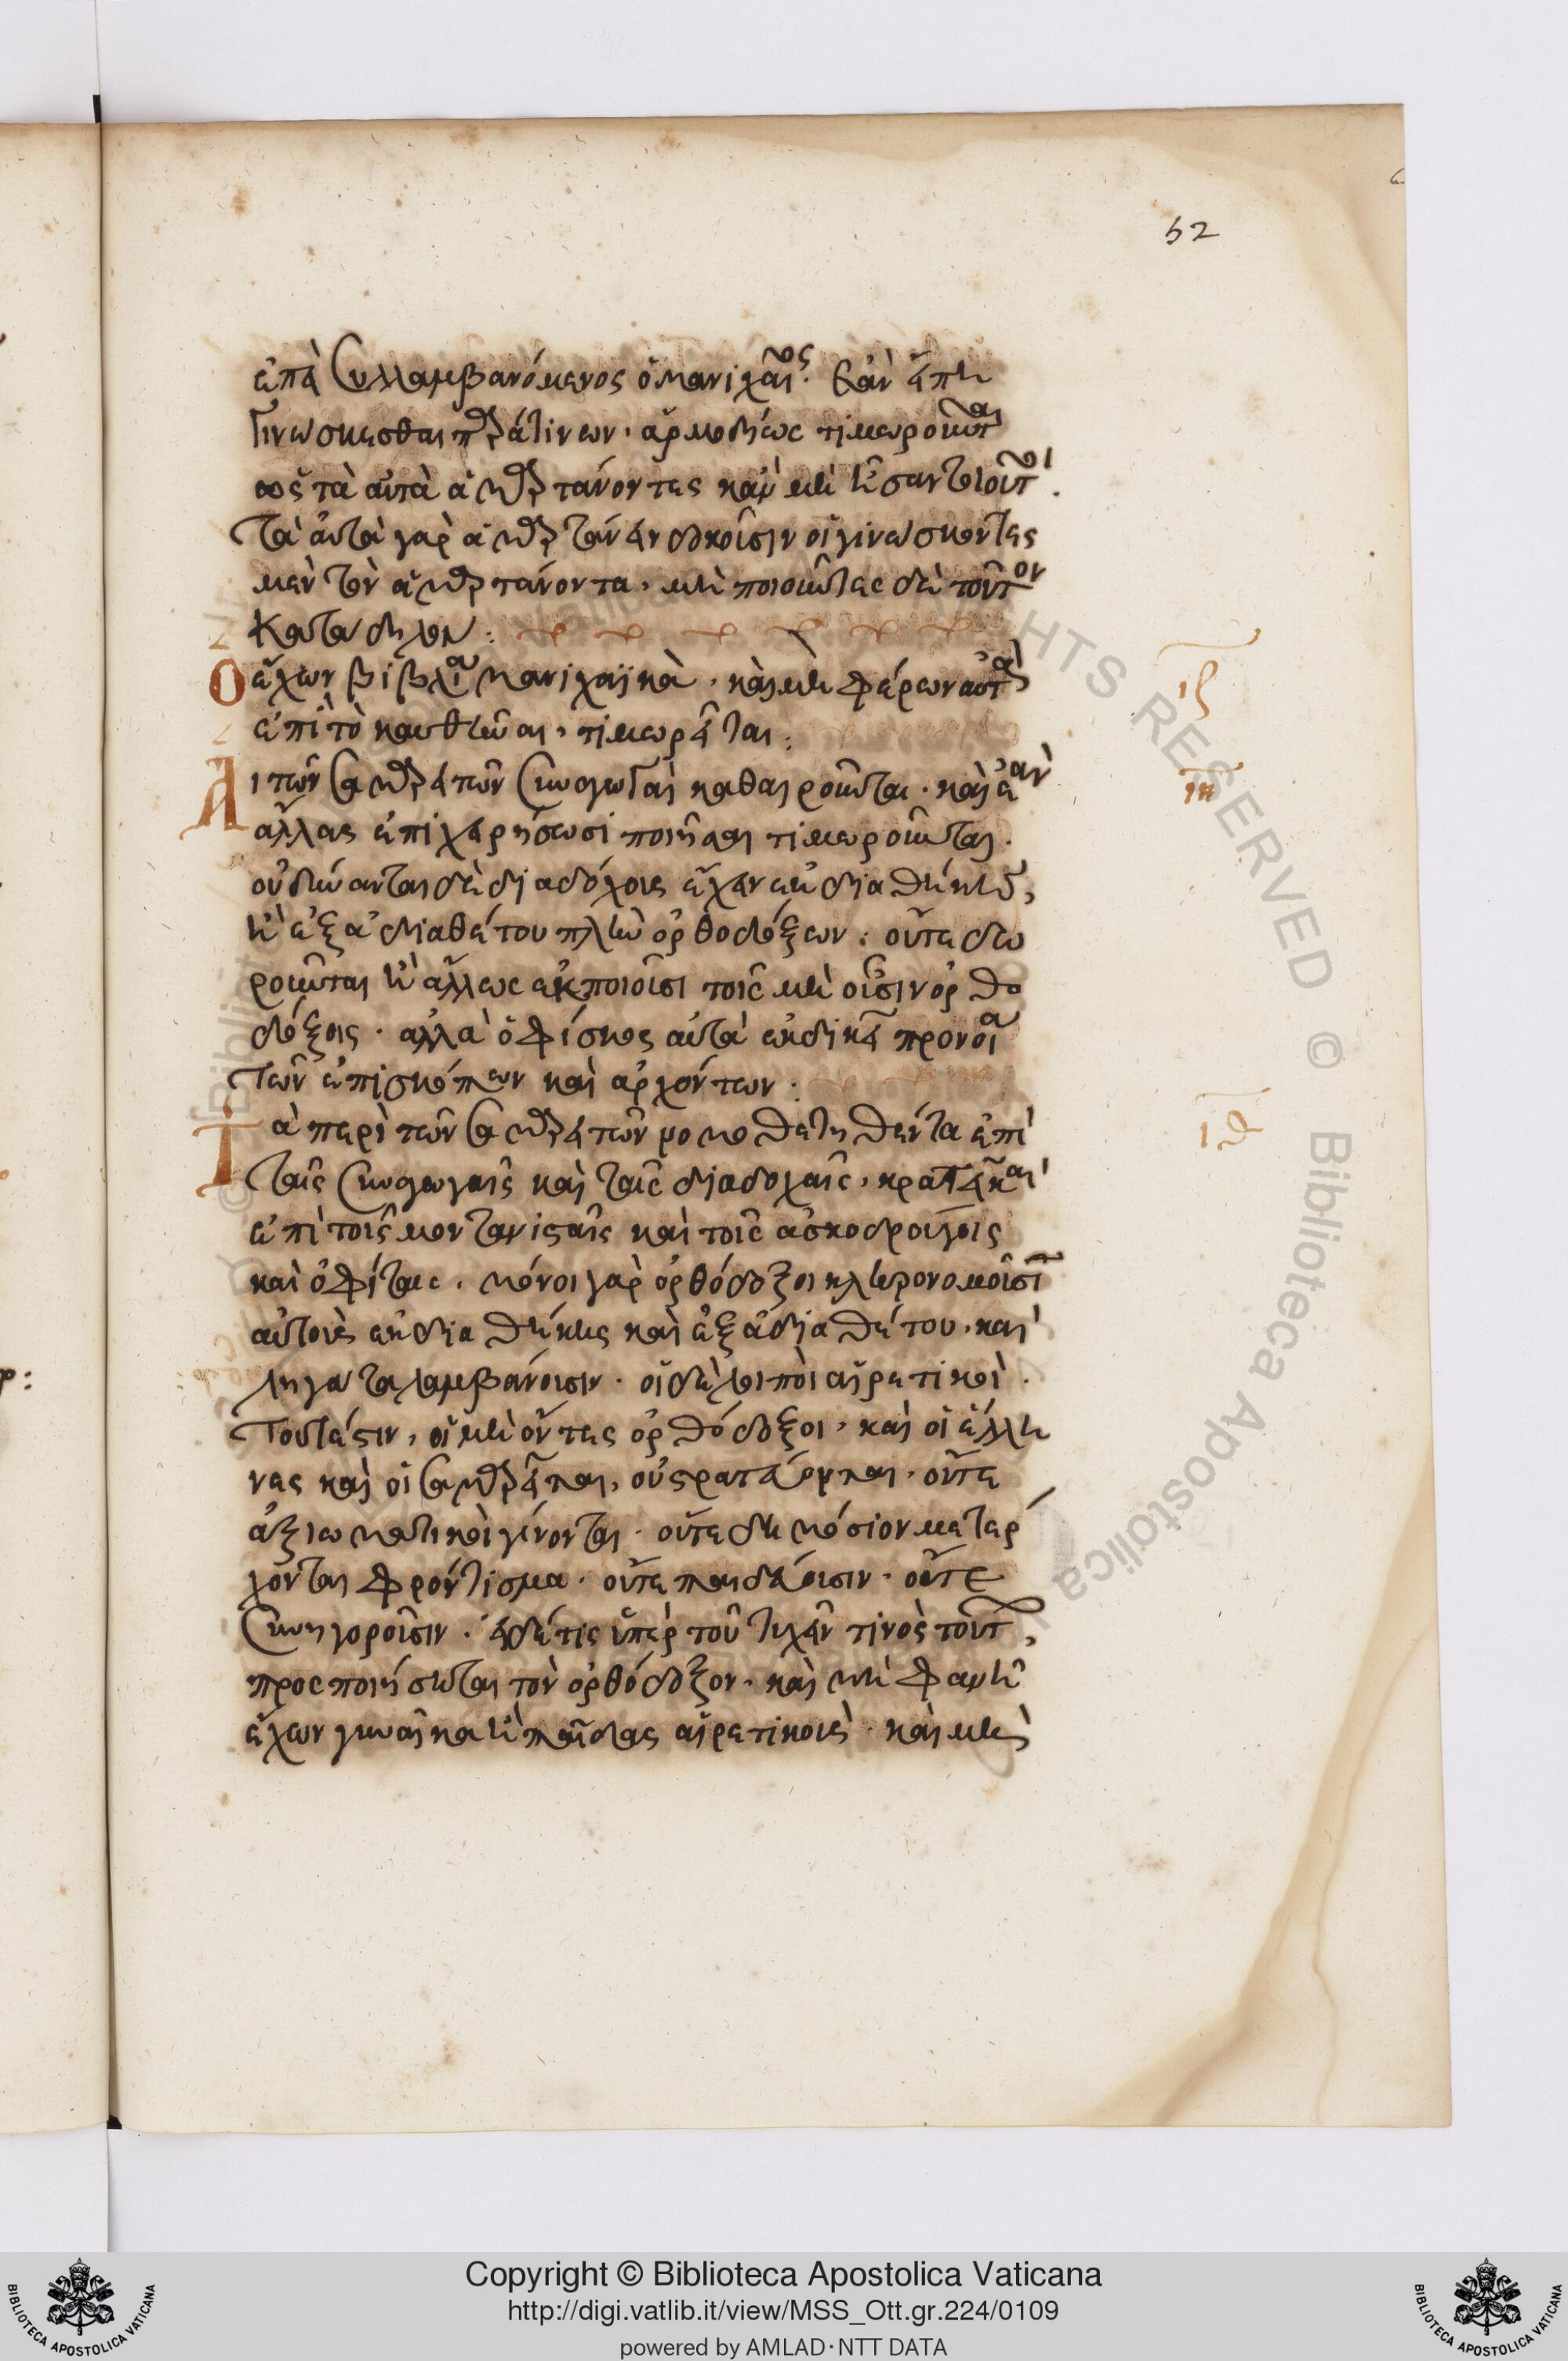 52
ἐπὰ συλλαμβανόμενος ὁ μανιχαῖος. ἐὰν ἔπη
γινώσκεσθαι πρά τινων, ἁρμοδίως τιμωροῦνται
ὡς τὰ αὐτὰ ἁμαρτάνοντες κἂν μὴ ἦσαν τοιοῦτοι.
τὰ αὐτὰ γὰρ ἁμαρτάνειν δοκοῦσιν οἱ γινώσκοντες
μὲν τὸν ἁμαρτάνοντα, μὴ ποιοῦντες δὲ τοῦτον
κατάδηλον:
Ὁ ἔχων βιβλία μανιχαϊκὰ, καὶ μὴ φέρων αὐτὰ
ἐπὶ τὸ καυθῆναι, τιμωρεῖται:
ιζ
Αἱ τῶν σαμαρειτῶν συναγωγαὶ καθαιροῦνται. καὶ ἐὰν
ιη
ἄλλας ἐπιχειρήσωσι ποιῆσαι τιμωροῦνται.
οὐ δύνανται δὲ διαδόχους ἔχειν ἐκ διαθήκης,
ἢ ἐξ ἀδιαθέτου πλὴν ὀρθοδόξων: οὔτε δω
ροῦνται ἢ ἄλλως ἐκποιοῦσι τοῖς μὴ οὖσιν ὀρθο
δόξοις. ἀλλὰ ὁ φίσκος αὐτὰ ἐκδικεῖ προνοία
τῶν ἐπισκόπων καὶ ἀρχόντων:
Τὰ περὶ τῶν σαμαρειτῶν νομοθετηθέντα ἐπὶ
ιθ
ταῖς συναγωγαῖς καὶ ταῖς διαδοχαῖς, κρατεῖ καὶ
ἐπὶ τοῖς μοντανισταῖς καὶ τοῖς ἀσκοδρούγοις
καὶ ὀφίταις. μόνοι γὰρ ὀρθόδοξοι κληρονομοῦσιν
αὐτοὺς ἐκ διαθήκης καὶ ἐξ ἀδιαθέτου. καὶ
ληγάτα λαμβάνουσιν. οἱ δὲ λοιποὶ αἱρετικοὶ.
τουτέστιν, οἱ μὴ ὄντες ὀρθόδοξοι, καὶ οἱ ἕλλη
νες καὶ οἱ σαμαρεῖται, οὐ στρατεύονται. οὔτε
ἀξιωματικοὶ γίνονται. οὔτε δημόσιον μετέρ
χονται φρόντισμα. οὔτε παιδεύουσιν. οὔτε
συνηγοροῦσιν. εἰ δέ τις ὑπὲρ τοῦ τυχεῖν τινὸς τούτων,
προσποιήσηται τὸν ὀρθόδοξον. καὶ μὴ φανῆ
ἔχων γυναῖκα ἢ παῖδας αἱρετικοὺς. καὶ μὴ
Copyright © Biblioteca Apostolica Vaticana
http://digi.vatlib.it/view/MSS_Ott.gr.224/0109
powered by AMLAD·NTT DATA